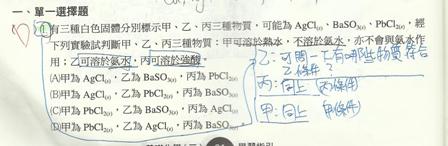 一、單一選擇題
1. 有三種白色固體分別標示甲、乙、丙三種物質，可能為 AgCl(s)、BaSO4(s)、PbCl2(s)，經
下列實驗試判斷甲、乙、丙三種物質：甲可溶於熱水，不溶於氨水，亦不會與氨水作
用；乙可溶於氨水，丙可溶於強酸。
(A)甲為 AgCl(s)，乙為 BaSO4(s)，丙為 PbCl2(s)
(B)甲為 BaSO4(s)，乙為 AgCl(s)，丙為 PbCl2(s)
(C)甲為 PbCl2(s)，乙為 BaSO4(s)，丙為 AgCl(s)
(D)甲為 PbCl2(s)，乙為 AgCl(s)，丙為 BaSO4(s)
乙：可問一下有哪些物質符合
乙條件？
丙：同上 丙條件
甲：同上 甲條件